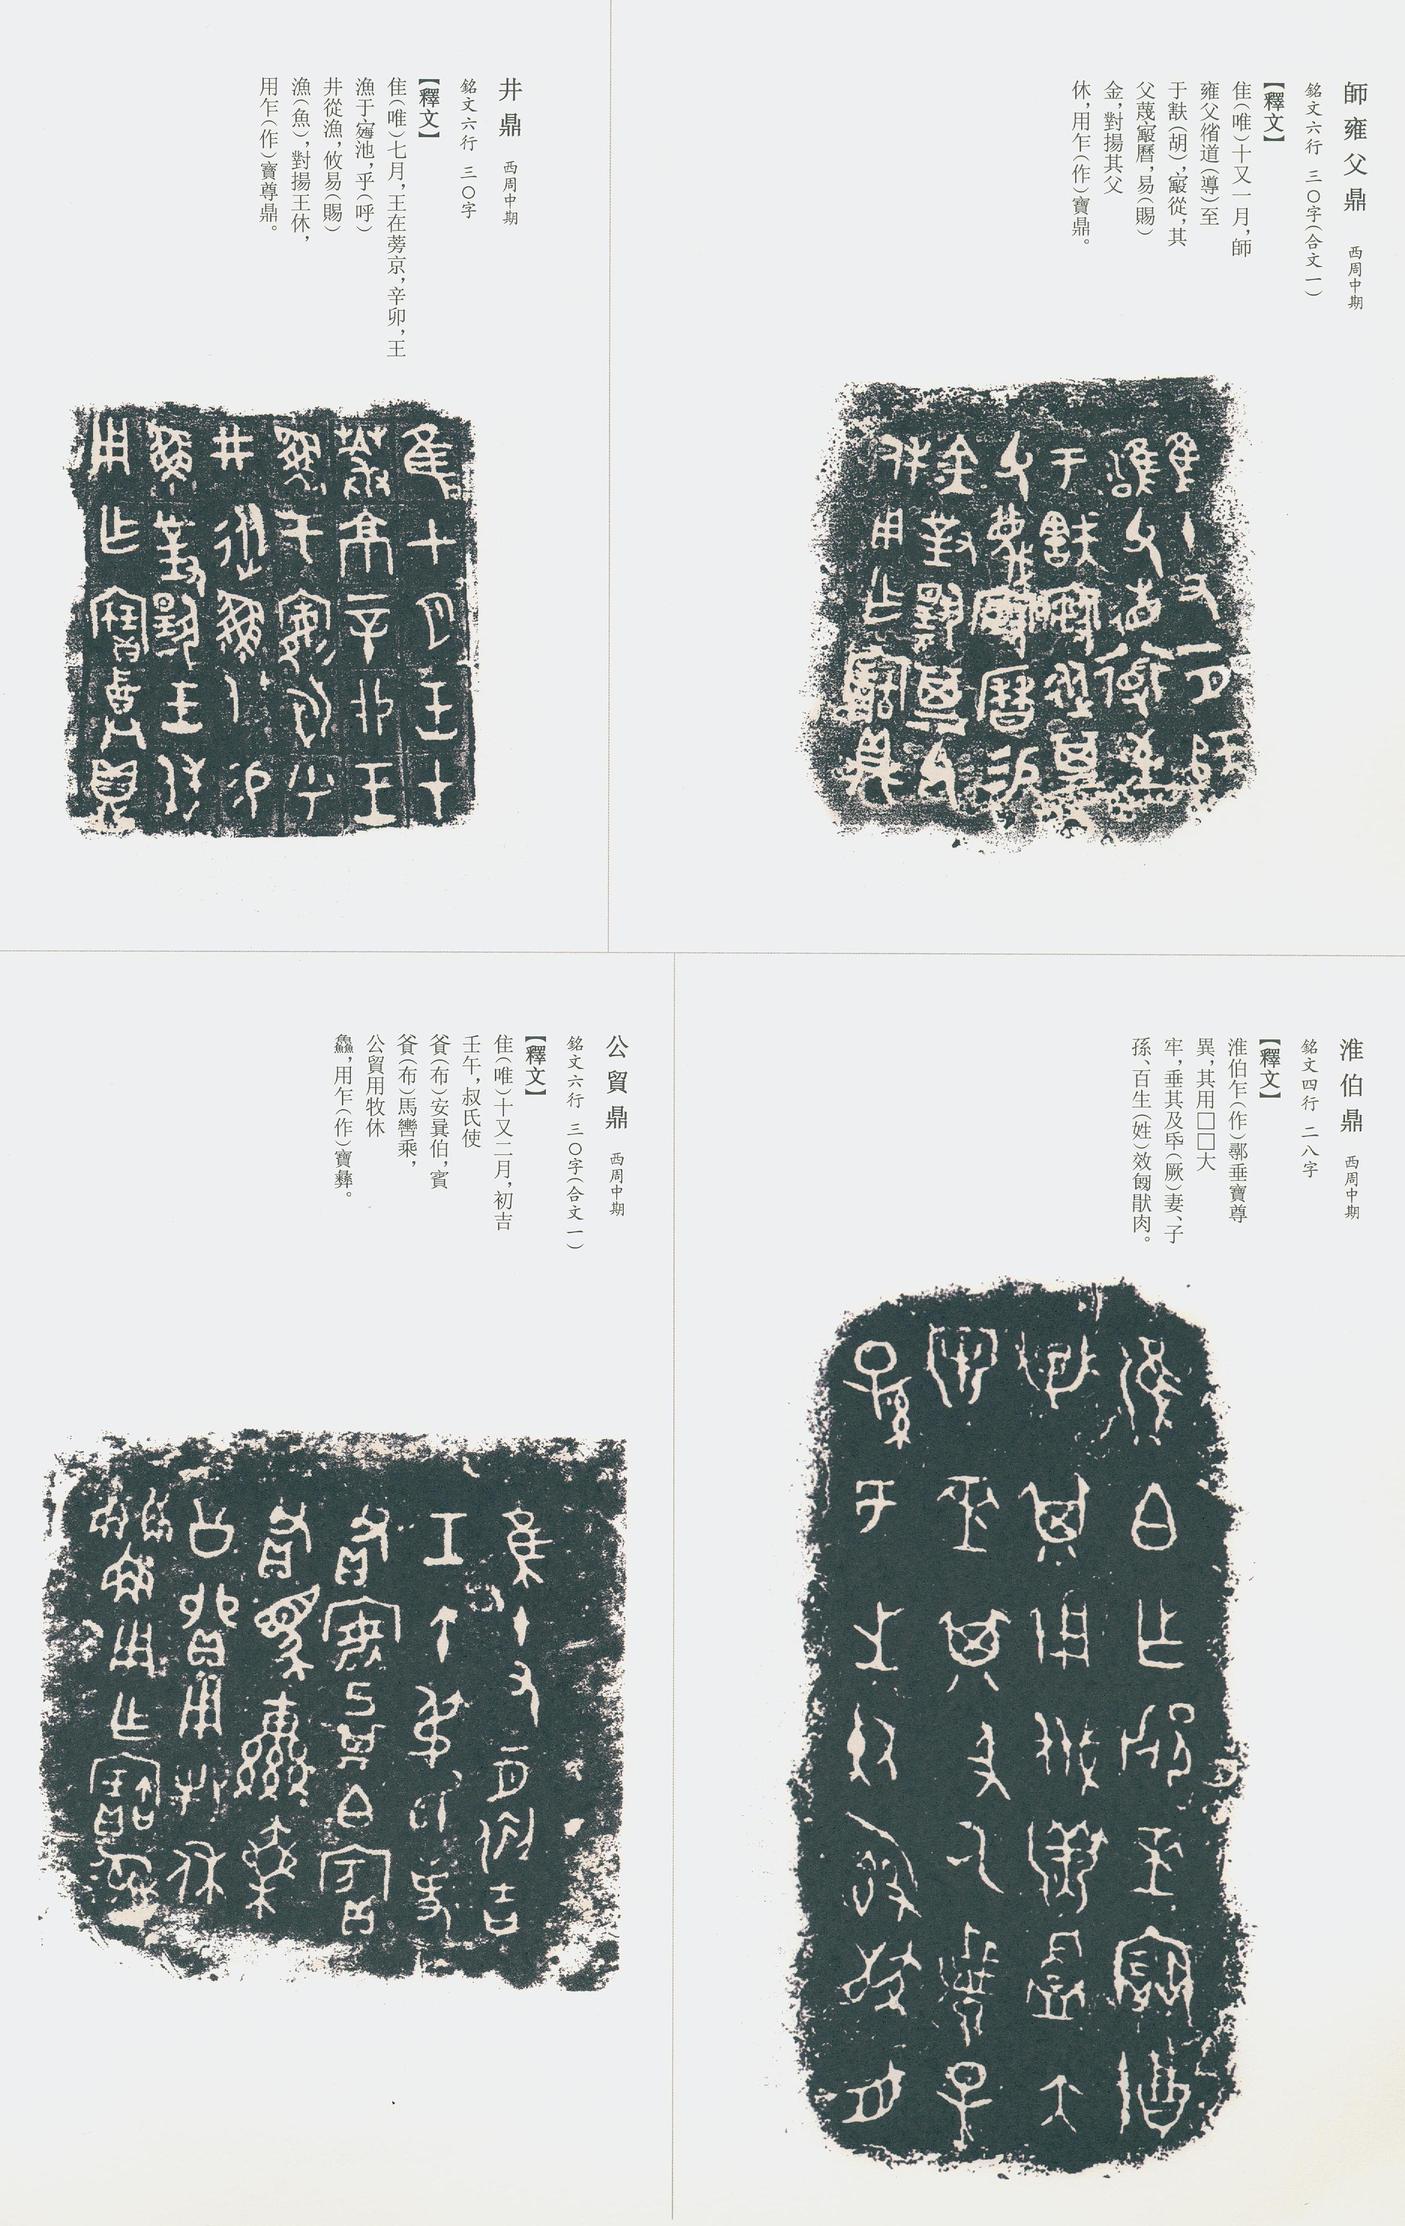 師雍父鼎 西周中期
銘文六行 三〇字(合文一)
【釋文】
隹(唯)十又一月,師
雍父徣道(導)至
于㝬(胡),𠭯從,其
父蔑𠭯曆,易(賜)
金,對揚其父
休,用乍(作)寶鼎。
井鼎 西周中期
銘文六行 三〇字
【釋文】
隹(唯)七月,王在蒡京,辛卯,王
漁于池,乎(呼)
井從漁,攸易(賜)
漁(魚),對揚王休,
用乍(作)寶尊鼎。
淮伯鼎 西周中期
銘文四行 二八字
【釋文】
淮伯乍(作)鄩垂寶尊
異,其用□□大
牢,垂其及氒(厥)妻、子
孫、百生(姓)效飤肰肉。
公貿鼎 西周中期
銘文六行 三〇字(合文一)
【釋文】
隹(唯)十又二月,初吉
壬午,叔氏使
(布)安㠱伯,賓
(布)馬轡乘,
公貿用牧休
鱻,用乍(作)寶彝。